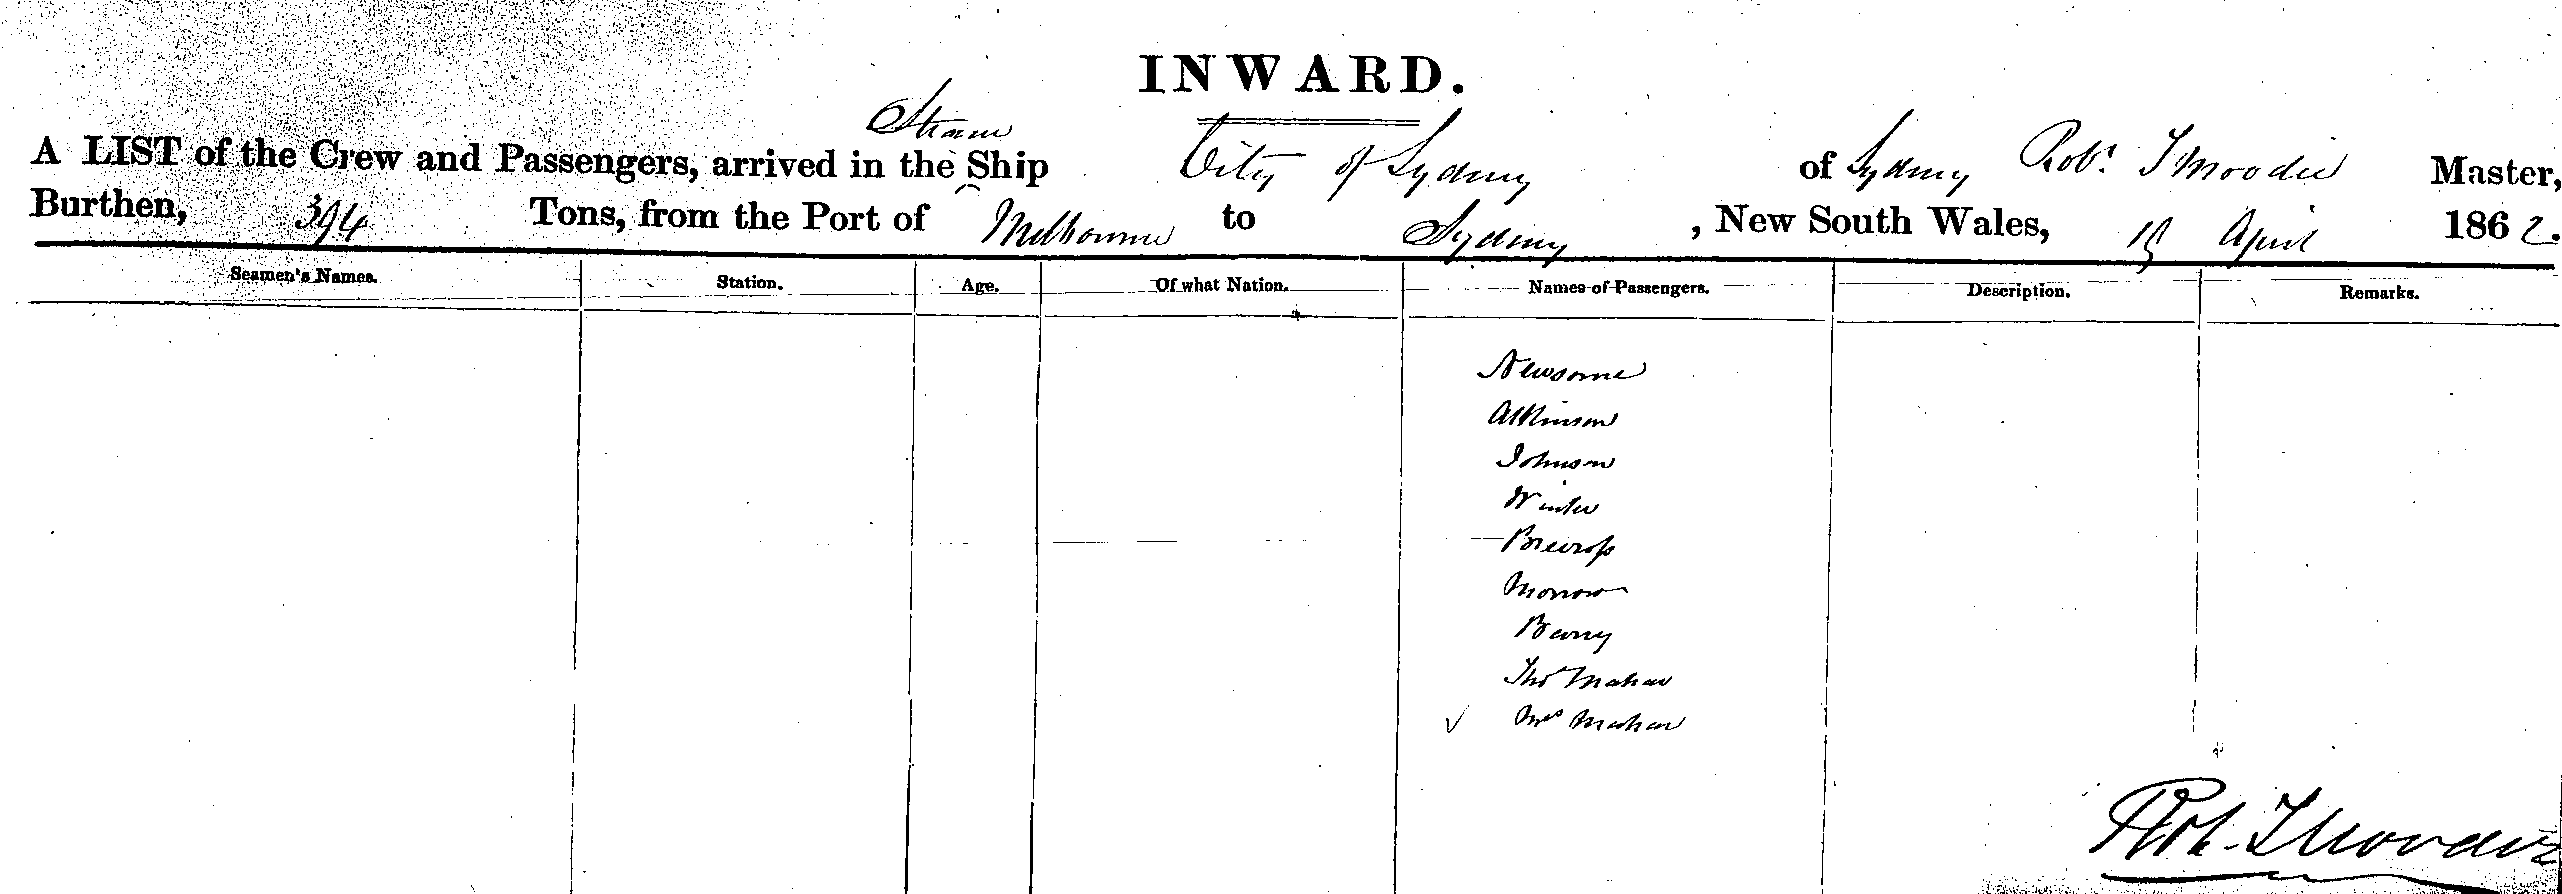 INWARD.
Steam
A LIST of the Crew and Passengers, arrived in the Ship City of Sydney of Sydney Robt. T Moodie Master,
Burthen, 394 Tons, from the Port of Melbourne to Sydney, New South Wales, April 1862.
Seamen's Names. Station. Age. Of what Nation. Names of Passengers. Description. Remarks.
Newsome
Atkinson
Johnson
Winter
Morrow
Barry
Thos Mahar
✓ Mrs Mahar
Rob. T Moodie